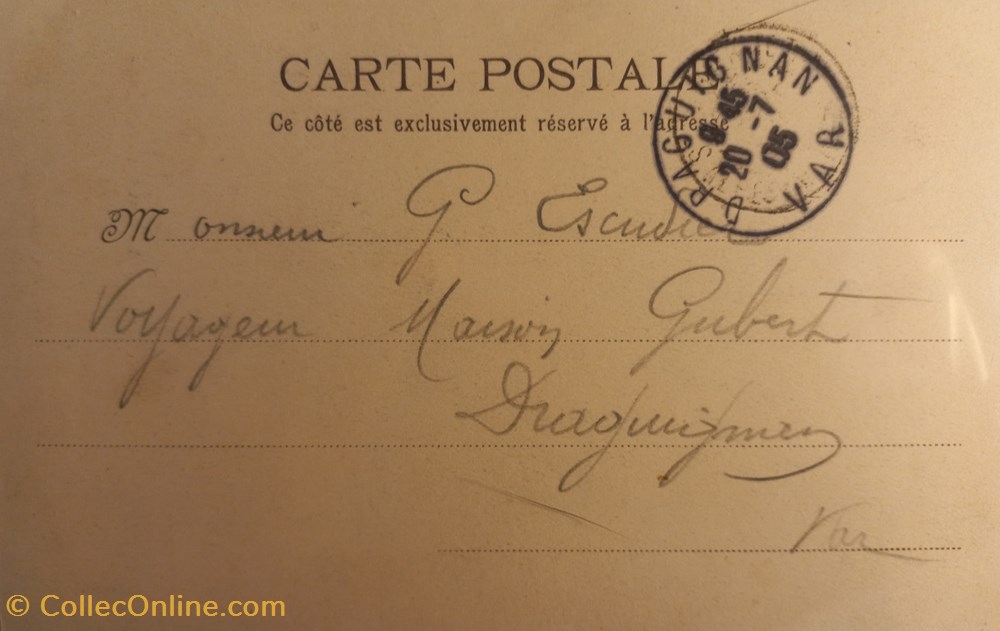 CARTE POSTALE
Ce côté est exclusivement réservé à l'adresse
DRAGUIGNAN
9 45
20 -7
05
VAR
Monsieur G Escudier
Voyageur Maison Gubert
Draguignan
Var
© CollecOnline.com